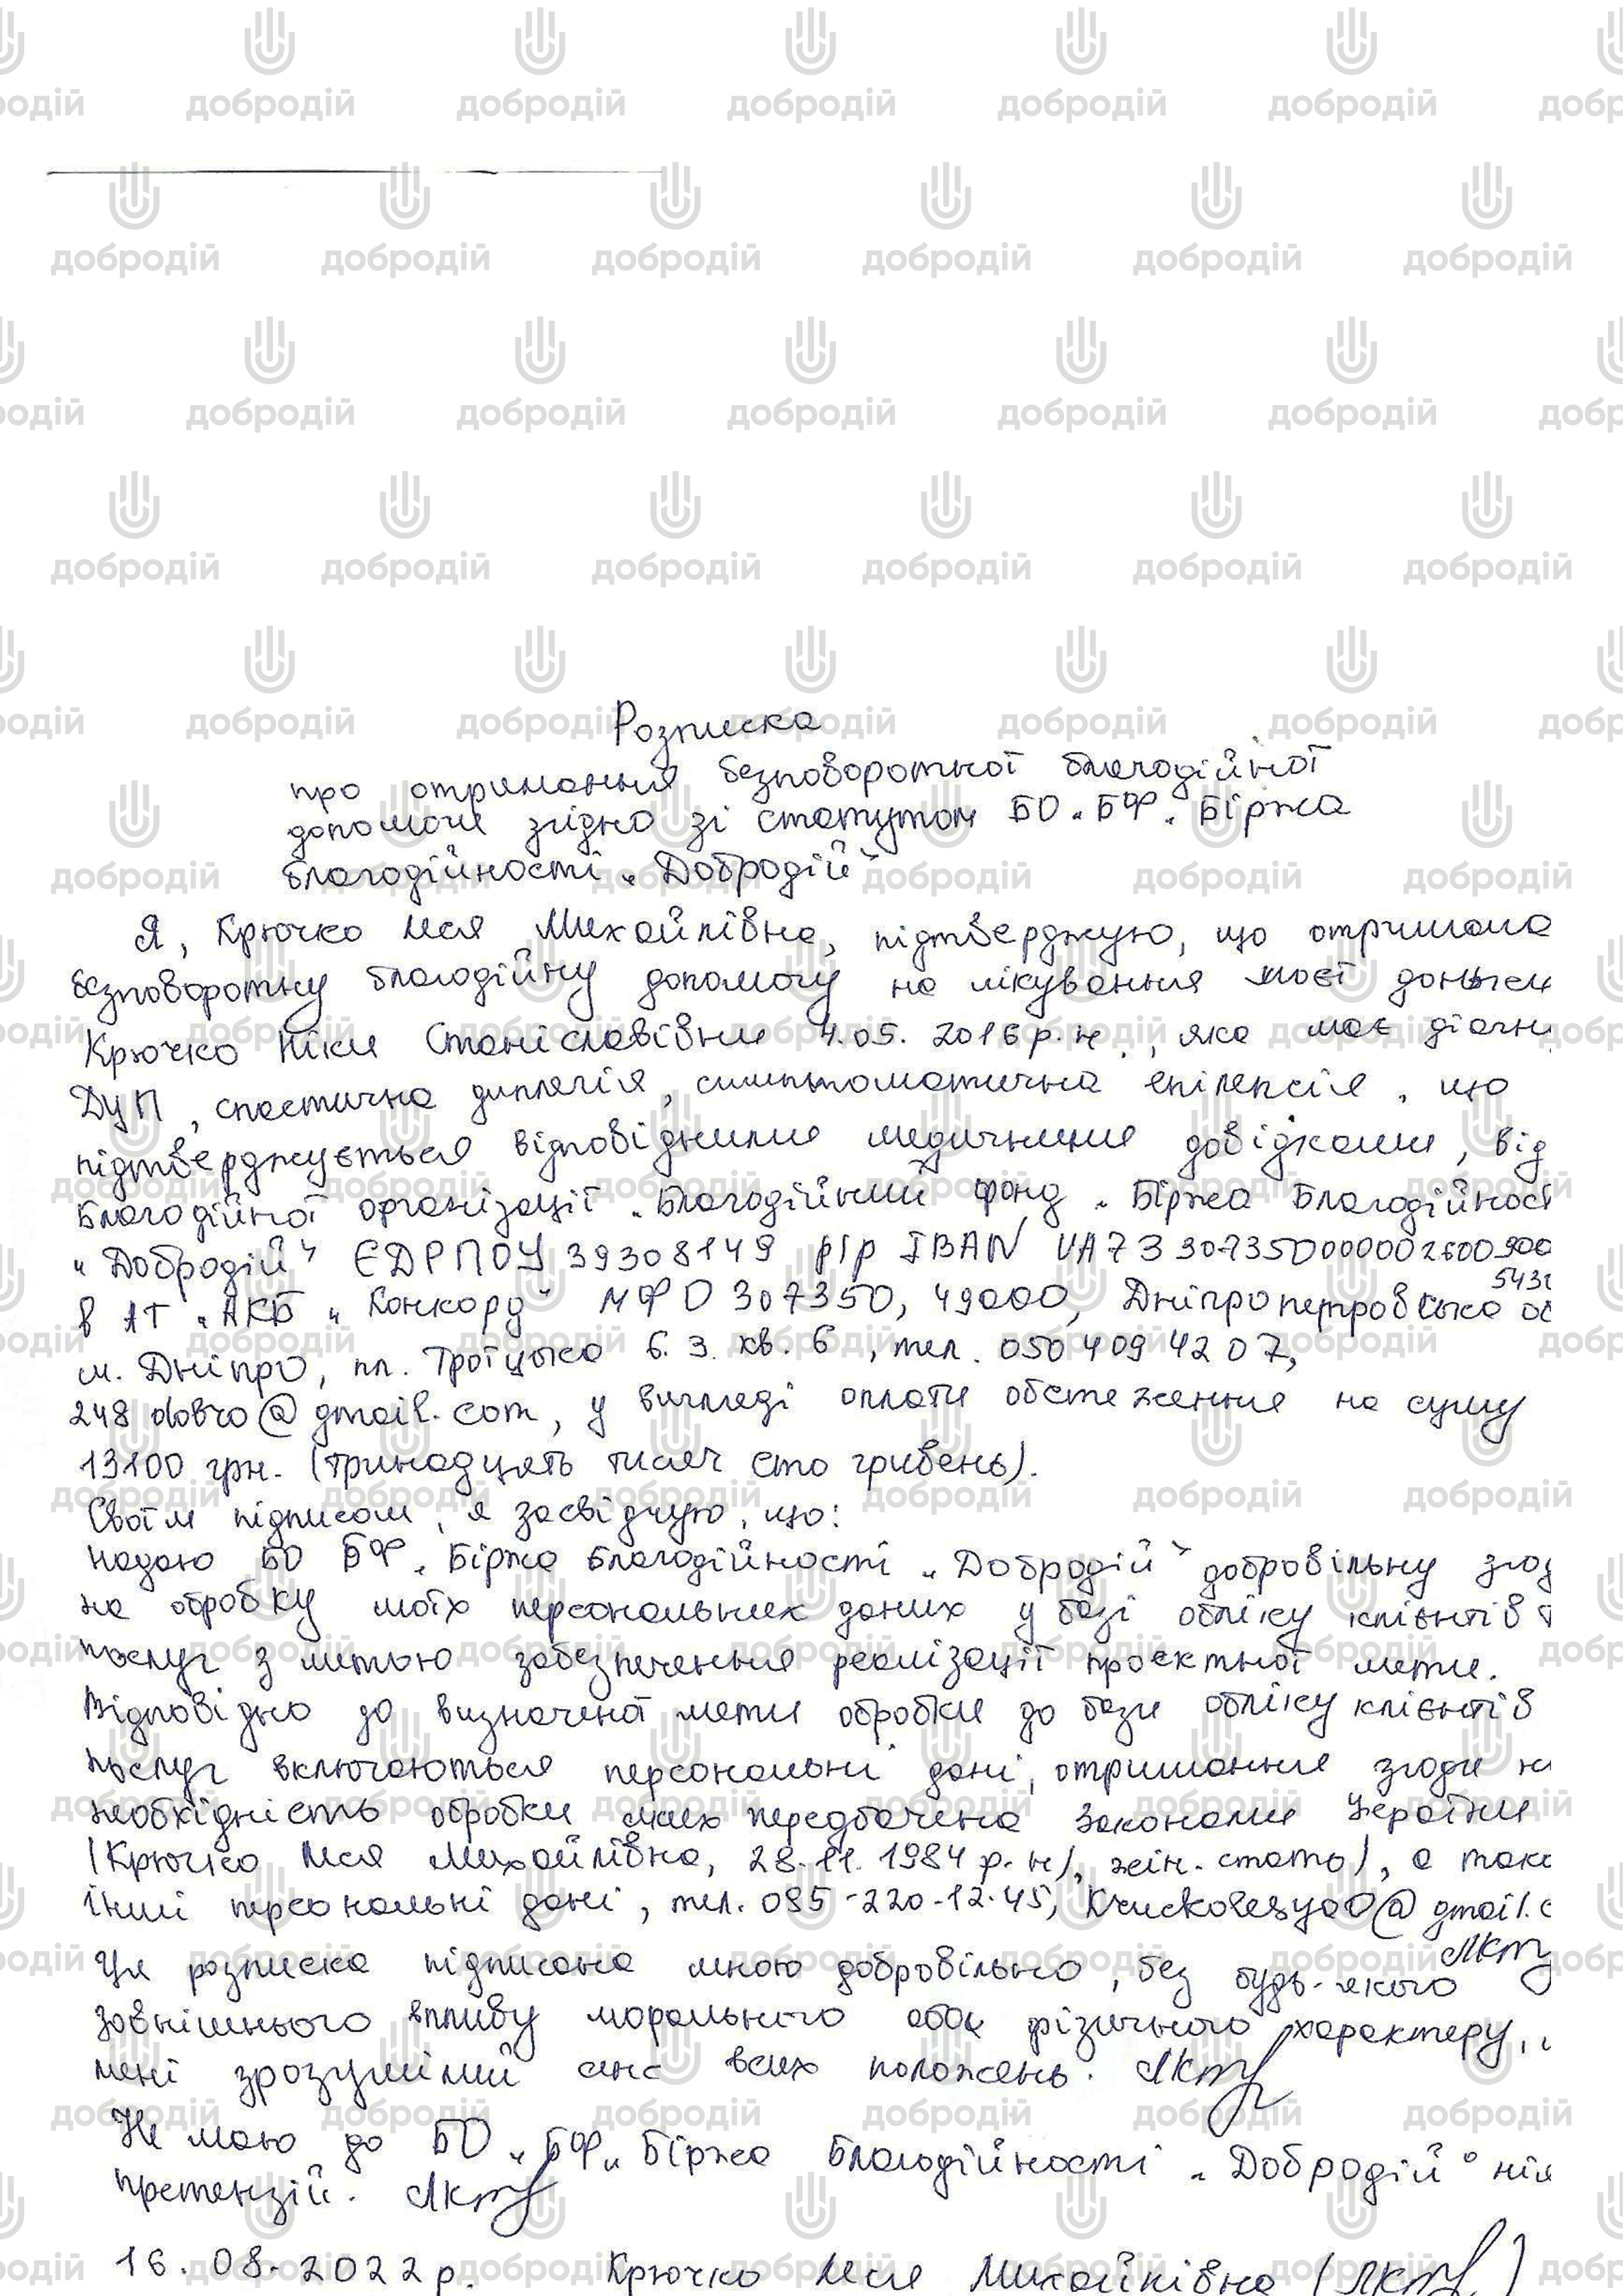 Розписка
про отримання безповоротної благодійної
допомоги згідно зі статутом БО „БФ „Біржа
благодійності „Добродій"
Я, Крючко Леся Михайлівна, підтверджую, що отримала
безповоротну благодійну допомогу на лікування моєї доньки
Крючко Ніки Станіславівни 4.05.2016 р.н., яка має діагн
ДЦП, спастична диплегія, симптоматична епілепсія, що
підтверджується відповідними медичними довідками, від
Благодійної організації „Благодійний фонд „Біржа Благодійност
„Добродій" ЄДРПОУ 39308149 р/р IBAN UA73307350000002600900
5431
в АТ „АКБ „Конкорд" МФО 307350, 49000, Дніпропетровська об
м. Дніпро, пл. Троїцька б. 3. кв. 6, тел. 050 409 42 07,
248dobro@gmail.com, у вигляді оплати обстеження на суму
13100 грн. (тринадцять тисяч сто гривень).
Своїм підписом, я засвідчую, що:
надаю БО БФ „Біржа Благодійності „Добродій" добровільну згод
на обробку моїх персональних даних у базі обліку клієнтів т
послуг з метою забезпечення реалізації проєктної мети.
Відповідно до визначеної мети обробки до бази обліку клієнтів
послуг включаються персональні дані, отримання згоди н
необхідність обробки яких передбачена Законами України
(Крючко Леся Михайлівна, 28.11.1984 р.н), жін. стать), а так
інші персональні дані, тел. 095-220-12-45, @gmail.c
Ця розписка підписана мною добровільно, без будь-якого
зовнішнього впливу морального або фізичного характеру,
мені зрозумілий всіх положень.
Не маю до БО „БФ„ Біржа Благодійності „Добродій" нія
претензій.
16.08.2022 р. Крючко Леся Михайлівна
добродій